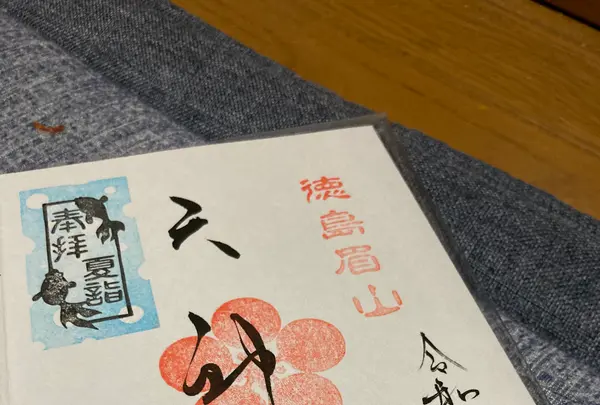 徳島眉山
奉拝
夏詣
天神
令和